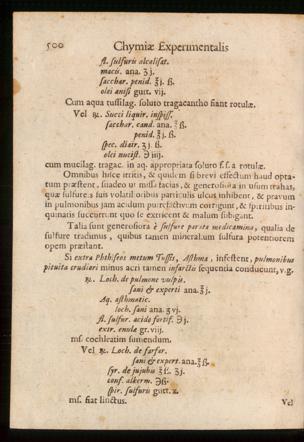 500 Chymiæ Experimentalis
fl. sulfuris alcalisat.
macis. ana. ʒj.
sacchar. penid. ℥j. ß.
olei anisi gutt. vij.
Cum aqua tussilag. soluto tragacantho fiant rotulæ.
Vel ℞. Succi liquir. inspiss.
sacchar. cand. ana. ℥ß.
penid. ℥j. ß.
spec. diair. ʒj. ß.
olei nucist. ℈iiij.
cum mucilag. tragac. in aq. appropriata soluto f. s. a rotulæ.
Omnibus hisce tritis, & quidem si brevi effectum haud opta-
tum præstent, suadeo ut missis tacitis, & generosiora in usum trahat,
quæ sulfureis suis volatilioribus particulis ulcus inhibent, & pravum
in pulmonibus jam acidum putrefactivum corrigunt, & spiritibus in-
quinatis succurrunt quo se extricent & malum subigant.
Talia sunt generosiora è sulfure parata medicamina, qualia de
sulfure tradimus, quibus tamen mineralium sulfura potentiorem
opem præstant.
Si extra Phthiseos metum Tussis, Asthma, infestent, pulmonibus
pituita crudiari minus acri tamen infarctis sequentia conducunt, v. g.
℞. Loch. de pulmone vulpis.
sani & experti ana. ℥j.
Aq. asthmatic.
loch. sani ana. ʒvj.
fl. sulfur. acido fortif. ℈j.
extr. enulæ gr. viij.
ms. cochleatim sumendum.
Vel ℞. Loch. de farfar.
sani & expert. ana. ℥ß.
syr. de jujubis
conf. alkerm. ℈ß.
spir. sulfuris gutt. x.
ms. fiat linctus.
Vel